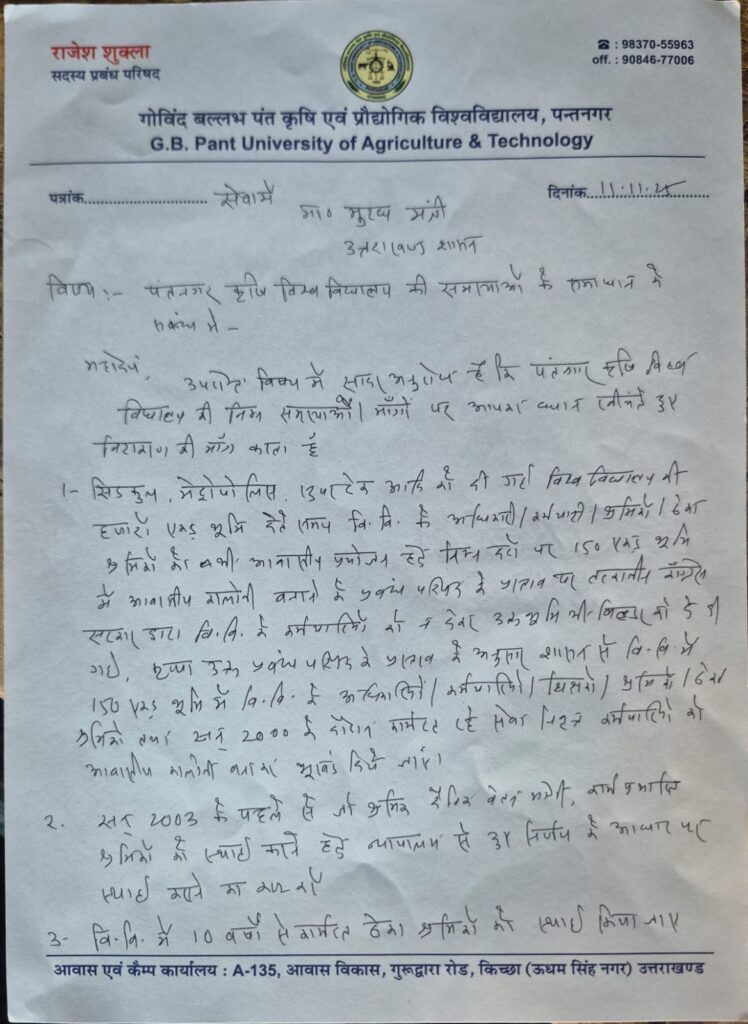 राजेश शुक्ला
सदस्य प्रबंध परिषद
☎ : 98370-55963
off. : 90846-77006
गोविंद बल्लभ पंत कृषि एवं प्रौद्योगिक विश्वविद्यालय, पन्तनगर
G.B. Pant University of Agriculture & Technology
पत्रांक.............................. सेवामें
दिनांक. 11.11.25
मा० मुख्य मंत्री
उत्तराखण्ड शासन
विषय :- पंतनगर कृषि विश्व विद्यालय की समस्याओं के समाधान के
संबंध में -
महोदय,
उपरोक्त विषय में सादर अनुरोध है कि पंतनगर कृषि विश्व
विद्यालय की निम्न समस्याओं / माँगों पर आपका ध्यान
निराकरण की माँग करता हूँ
1- सिडकुल, मेट्रोपोलिस, आदि को दी गई विश्व विद्यालय की
हजारों एकड़ भूमि देते समय वि.वि. के अधिकारी / कर्मचारी / श्रमिकों / ठेका
श्रमिकों को आवासीय प्रयोजन हेतु दरों पर 150 एकड़ भूमि
में आवासीय कालोनी बनाने के प्रबंध परिषद के प्रस्ताव पर तत्कालीन काँग्रेस
सरकार द्वारा वि.वि. के कर्मचारियों को न देकर उक्त भूमि भी बिल्डर को दे दी
गई, कृपया उक्त प्रबंध परिषद के प्रस्ताव के अनुसार शासन से वि.वि. में
150 एकड़ भूमि में वि.वि. के अधिकारियों / कर्मचारियों / शिक्षकों / श्रमिकों / ठेका
श्रमिकों तथा सन् 2000 के दौरान कार्यरत रहे सेवा निवृत्त कर्मचारियों को
आवासीय कालोनी बनाकर भूखंड दिये जाएं।
2. सन् 2003 के पहले से जो श्रमिक दैनिक वेतन भोगी, कार्य प्रभारित
श्रमिकों को स्थाई करने हेतु न्यायालय से हुए निर्णय के आधार पर
स्थाई करने का कष्ट करें
3- वि.वि. में 10 वर्षों से कार्यरत ठेका श्रमिकों को स्थाई किया जाए
आवास एवं कैम्प कार्यालय : A-135, आवास विकास, गुरूद्वारा रोड, किच्छा (ऊधम सिंह नगर) उत्तराखण्ड